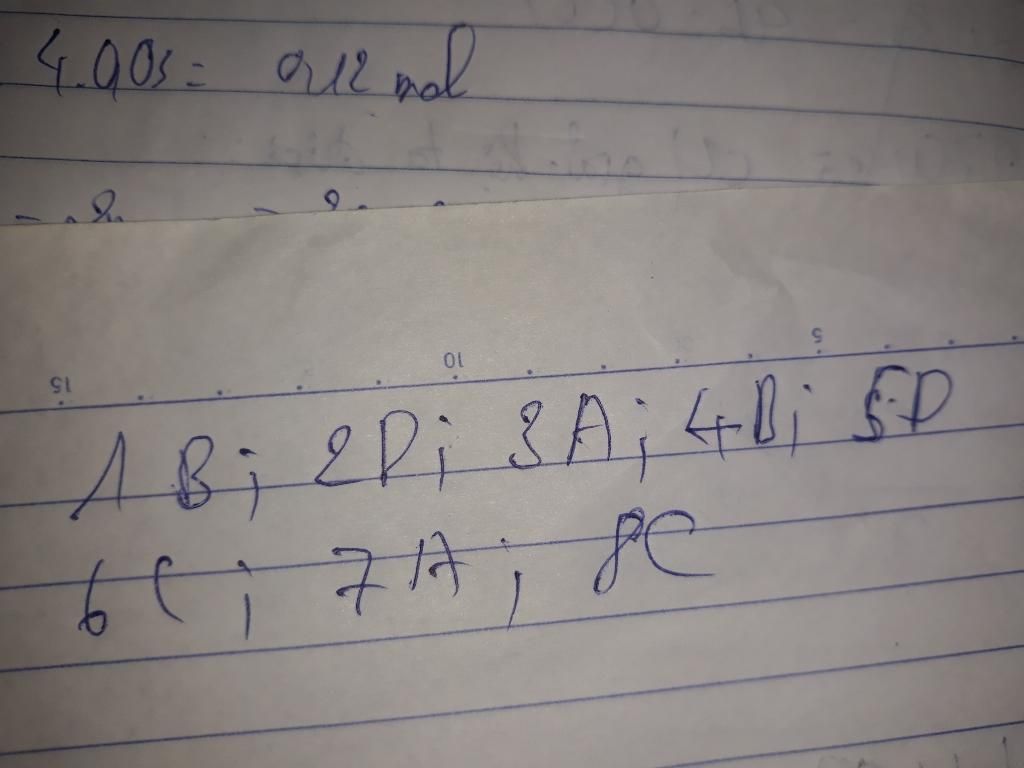 4.0,03 = 0,12 mol
15 10 5
1B; 2D; 3A; 4B; 5D
6C; 7A; 8C